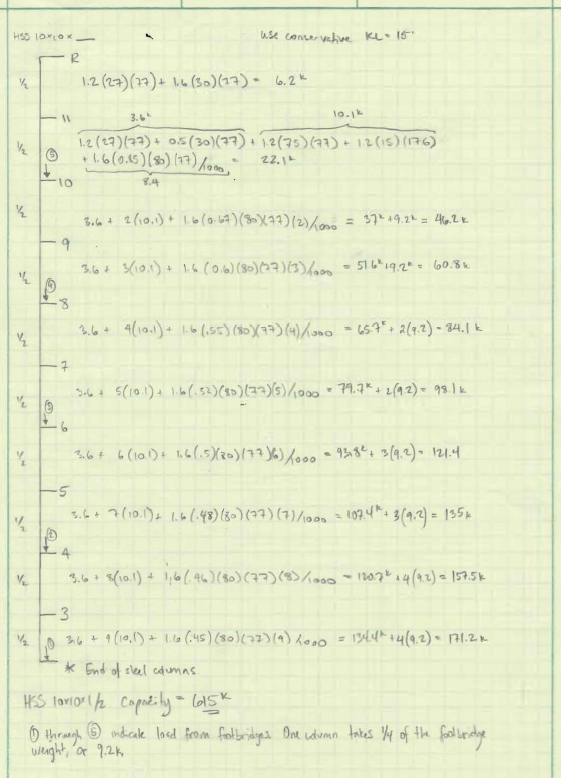 HSS 10×10× __ use conservative KL = 15'
R
1/2 1.2(27)(77) + 1.6(30)(77) = 6.2ᵏ
11 3.6ᵏ 10.1ᵏ
1/2 1.2(27)(77) + 0.5(30)(77) + 1.2(75)(77) + 1.2(15)(176)
⑤ + 1.6(0.85)(80)(77)/1000 = 22.1ᵏ
10 8.4
1/2 3.6 + 2(10.1) + 1.6(0.67)(80)(77)(2)/1000 = 37ᵏ + 9.2ᵏ = 46.2k
9
1/2 3.6 + 3(10.1) + 1.6(0.6)(80)(77)(3)/1000 = 51.6ᵏ + 9.2ᵏ = 60.8k
④
8
1/2 3.6 + 4(10.1) + 1.6(.55)(80)(77)(4)/1000 = 65.7ᵏ + 2(9.2) = 84.1k
7
1/2 3.6 + 5(10.1) + 1.6(.52)(80)(77)(5)/1000 = 79.7ᵏ + 2(9.2) = 98.1k
③
6
1/2 3.6 + 6(10.1) + 1.6(.5)(80)(77)(6)/1000 = 93.8ᵏ + 3(9.2) = 121.4
5
1/2 3.6 + 7(10.1) + 1.6(.48)(80)(77)(7)/1000 = 107.4ᵏ + 3(9.2) = 135k
②
4
1/2 3.6 + 8(10.1) + 1.6(.46)(80)(77)(8)/1000 = 120.7ᵏ + 4(9.2) = 157.5k
3
1/2 ① 3.6 + 9(10.1) + 1.6(.45)(80)(77)(9)/1000 = 134.4ᵏ + 4(9.2) = 171.2k
* End of steel columns
HSS 10×10×1/2 Capacity = 615ᵏ
① through ⑤ indicate load from footbridges. One column takes 1/4 of the footbridge
weight, or 9.2k.